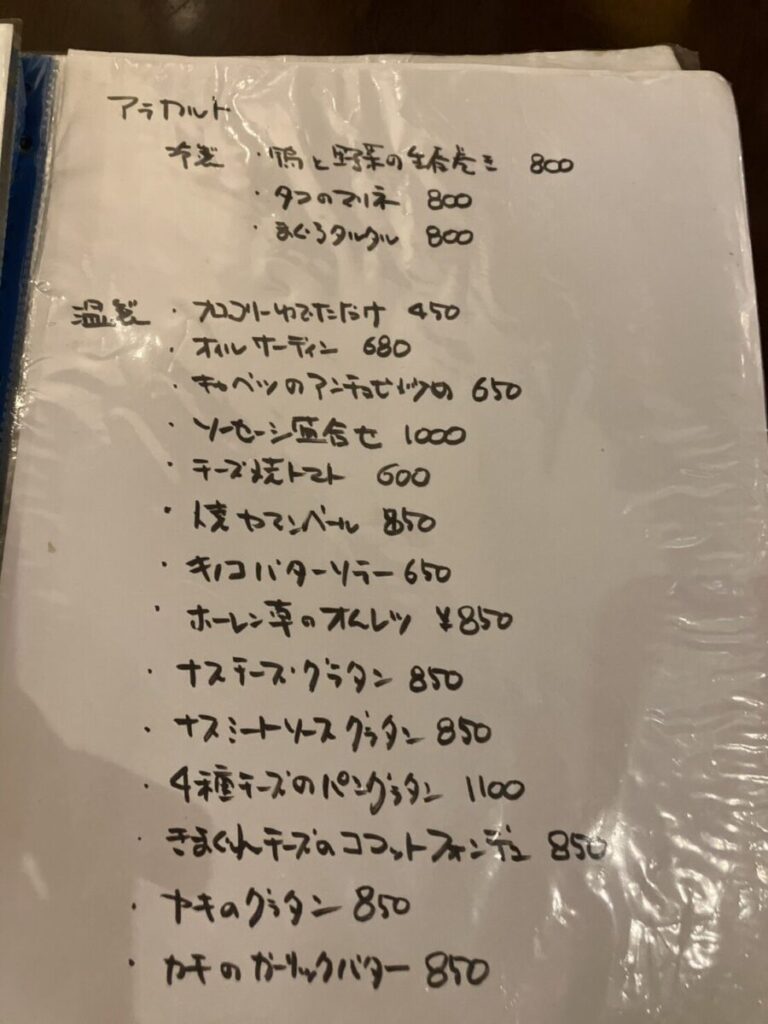 アラカルト
冷製 ・鴨と野菜の生春巻き 800
・タコのマリネ 800
・まぐろタルタル 800
温製 ・ブロッコリーゆでただけ 450
・オイルサーディン 680
・キャベツのアンチョビ炒め 650
・ソーセージ盛合せ 1000
・チーズ焼トマト 600
・焼カマンベール 850
・キノコバターソテー 650
・ホーレン草のオムレツ ¥850
・ナスチーズ・グラタン 850
・ナスミートソースグラタン 850
・4種チーズのパングラタン 1100
・きまぐれチーズのココットフォンデュ 850
・カキのグラタン 850
・カキのガーリックバター 850